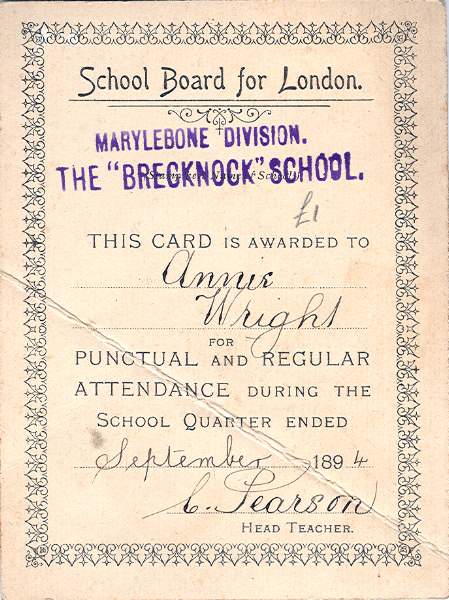 School Board for London.
MARYLEBONE DIVISION.
THE "BRECKNOCK" SCHOOL.
(Stamp here Name of School)
£1
THIS CARD IS AWARDED TO
Annie
Wright
FOR
PUNCTUAL AND REGULAR
ATTENDANCE DURING THE
SCHOOL QUARTER ENDED
September 1894
C. Pearson
HEAD TEACHER.